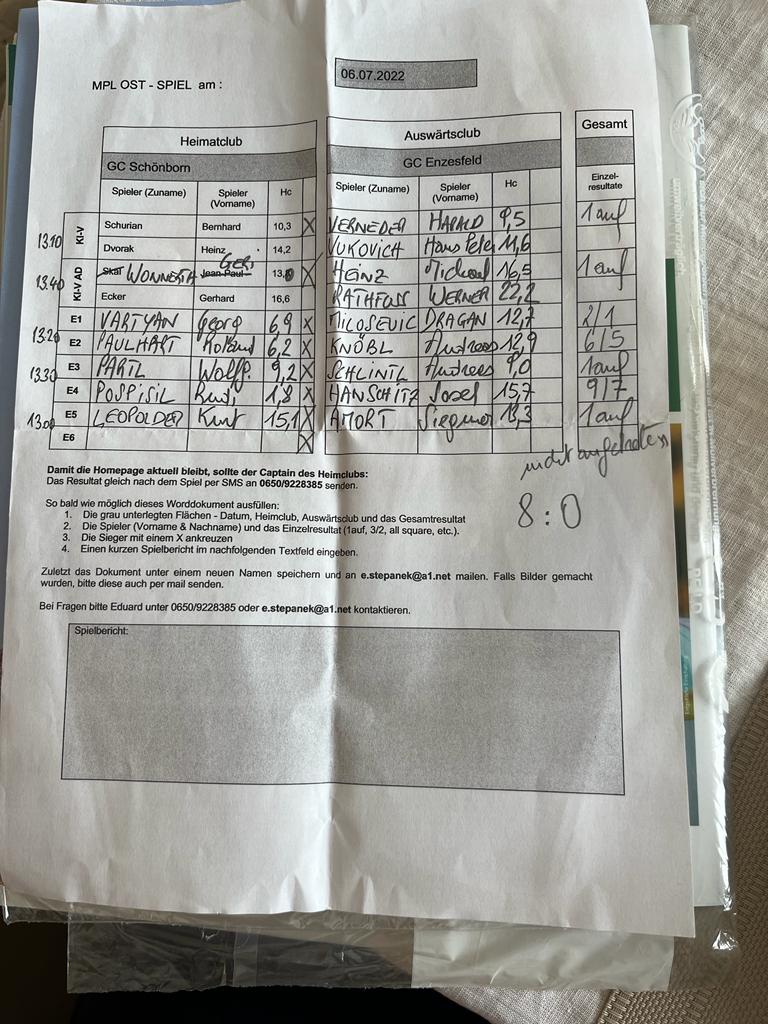 MPL OST - SPIEL am : 06.07.2022
Heimatclub Auswärtsclub Gesamt
GC Schönborn GC Enzesfeld
Spieler (Zuname) Spieler (Vorname) Hc Spieler (Zuname) Spieler (Vorname) Hc Einzel-resultate
13.10 KI-V Schurian Bernhard 10,3 X VERNEDER HARALD 9,5 1 auf
Dvorak Heinz 14,2 VUKOVICH Hans Peter 11,6
13.40 KI-V AD WONNERTH GERI 13, X HEINZ Michael 16,5 1 auf
Ecker Gerhard 16,6 RATHFUSS WERNER 22,2
E1 VARTYAN Georg 6,9 X MILOSEVIC DRAGAN 12,7 2/1
13.20 E2 PAULHART Roland 6,2 X KNÖBL Andreas 12,9 6/5
13.30 E3 PARTL Wolfg. 9,2 X SCHLINTL Andreas 9,0 1 auf
E4 POSPISIL Rudi 1,8 X HANSCHITZ Josef 15,7 9/7
13.00 E5 LEOPOLDER Kurt 15,1 X AMORT Siegmar 13,3 1 auf
E6 X nicht angetreten
8:0
Damit die Homepage aktuell bleibt, sollte der Captain des Heimclubs:
Das Resultat gleich nach dem Spiel per SMS an 0650/9228385 senden.
So bald wie möglich dieses Worddokument ausfüllen:
1. Die grau unterlegten Flächen - Datum, Heimclub, Auswärtsclub und das Gesamtresultat
2. Die Spieler (Vorname & Nachname) und das Einzelresultat (1auf, 3/2, all square, etc.).
3. Die Sieger mit einem X ankreuzen
4. Einen kurzen Spielbericht im nachfolgenden Textfeld eingeben.
Zuletzt das Dokument unter einem neuen Namen speichern und an e.stepanek@a1.net mailen. Falls Bilder gemacht
wurden, bitte diese auch per mail senden.
Bei Fragen bitte Eduard unter 0650/9228385 oder e.stepanek@a1.net kontaktieren.
Spielbericht: